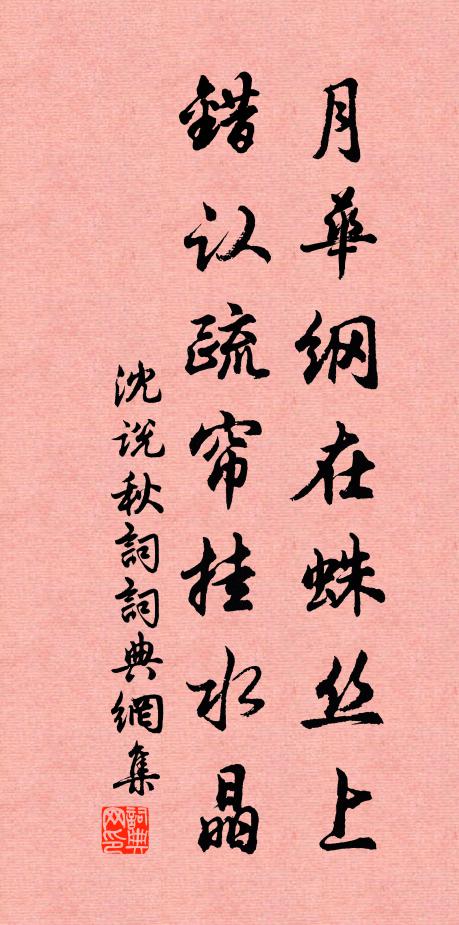 月華纲在蛛丝上
錯认疏帘挂水晶
沈说秋詞詞典網集
詞典网印